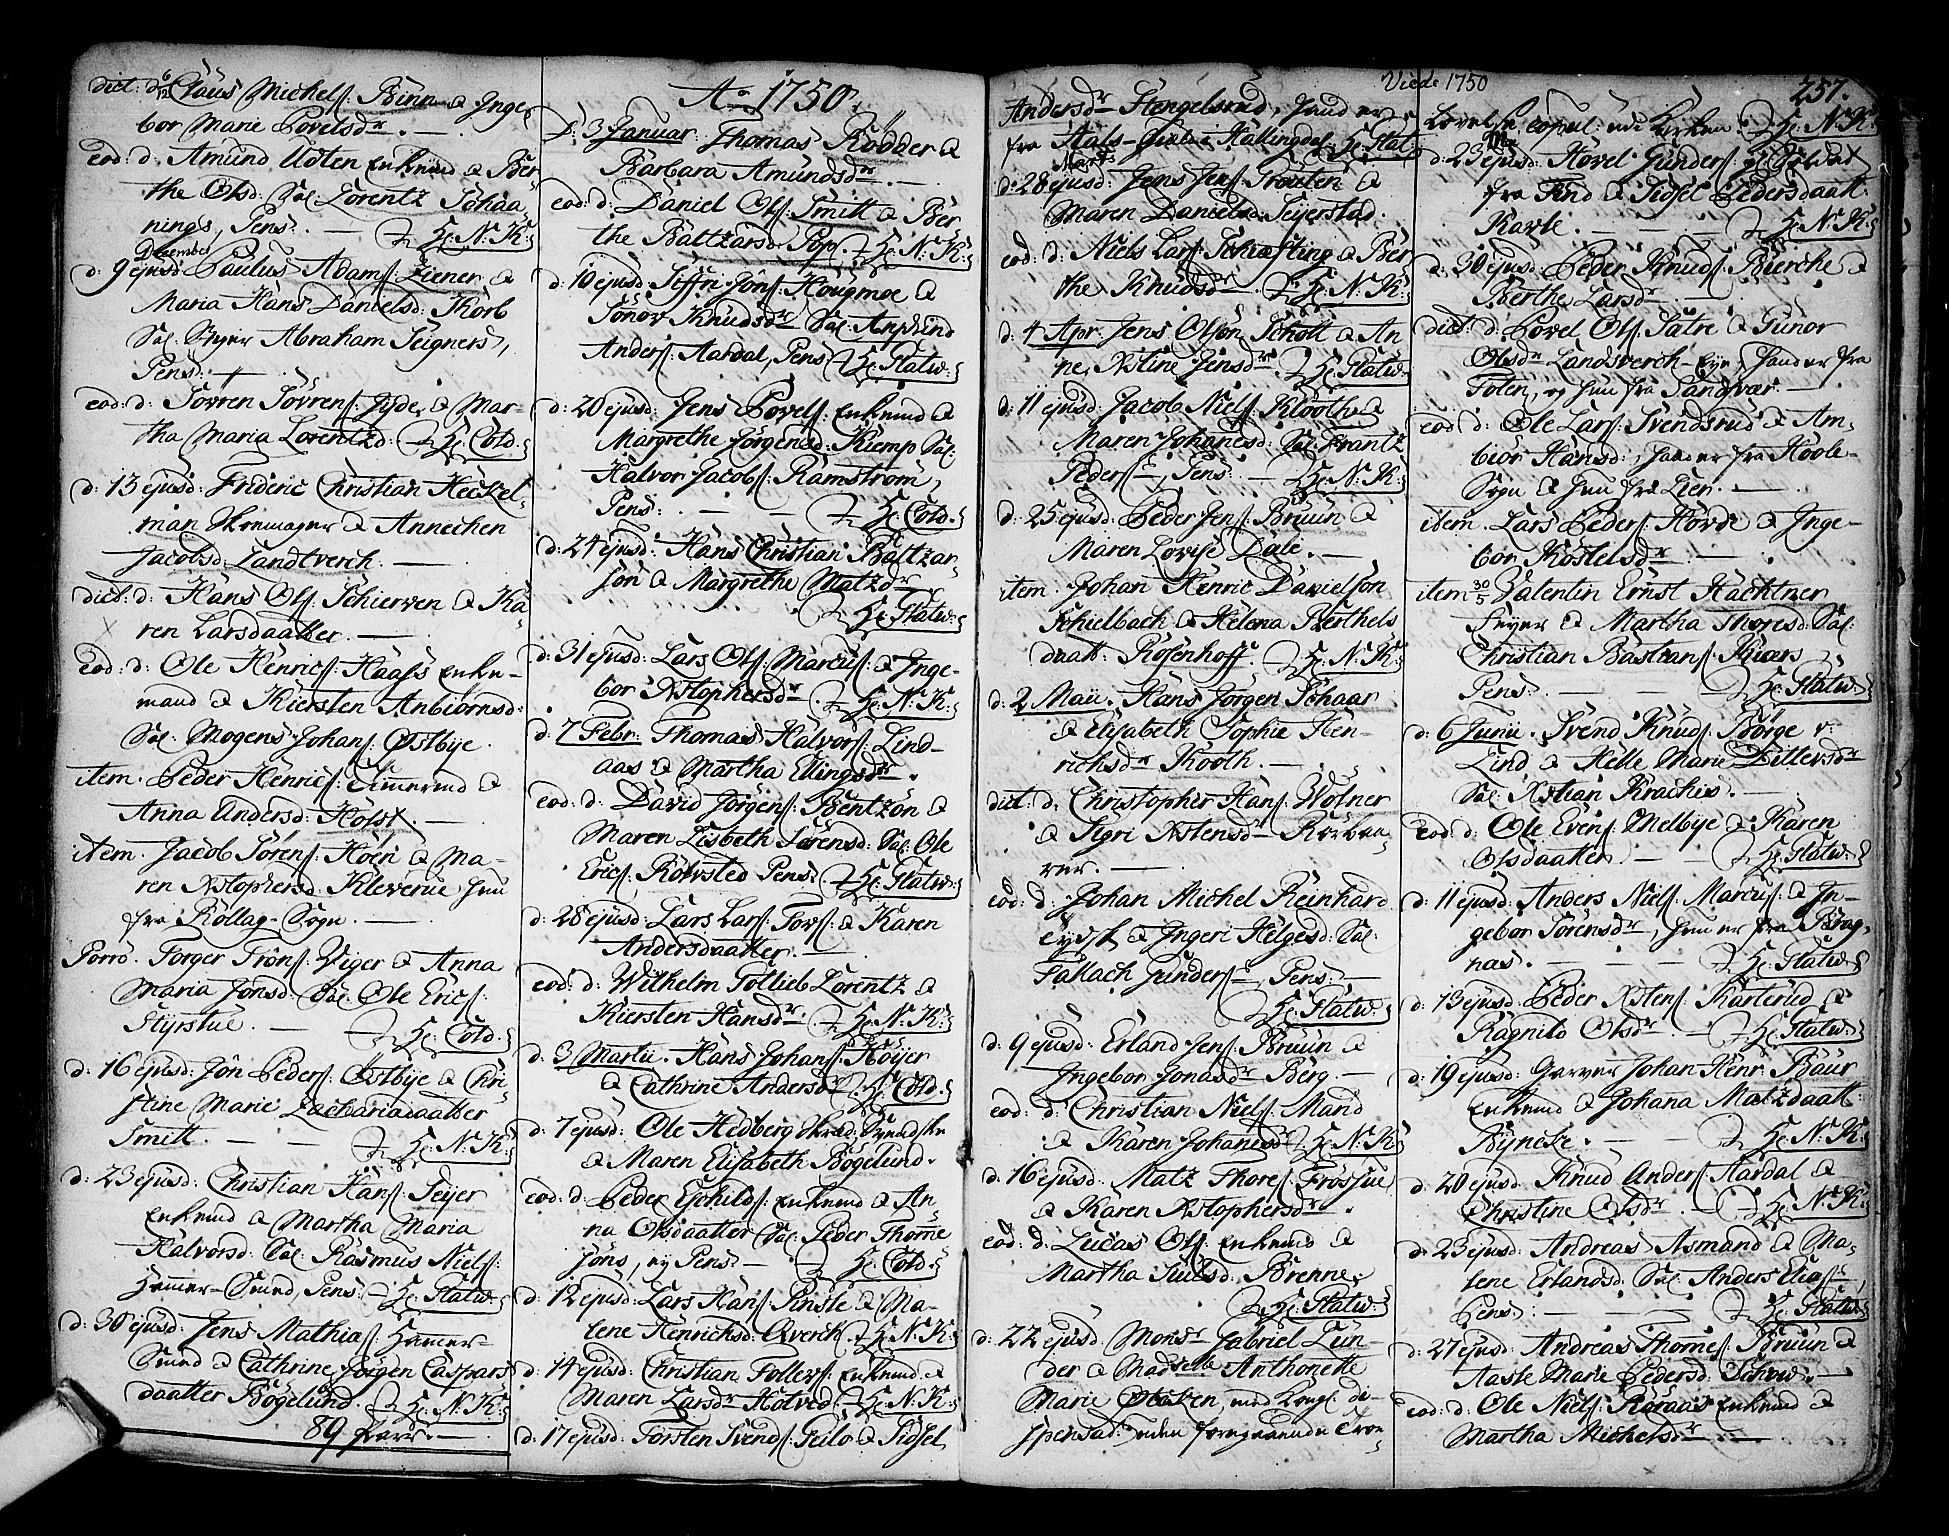 dict: d: 6/12 Claus Michels: Binn & Inge
bor Marie Povelsdr. —
eod: d: Amund Udten Enkemd & Ber-
the Olsd: Sal: Lorentz Johan
nings, Pens: — Hr: N: K:
December
d: 9 ejusd: Paulus Adams: Ziener &
Maria Hans Daniels: Korb
Sal: Abraham Seigners,
Pens: —
eod: d: Sövren Sövrens: Jyde & Mar-
tha Maria Lorentzd: Hr: Cold:
d: 13 ejusd: Frideric Christian Heckel-
man Skomager & Annechen
Jacobsd: Sandtverch. —
dict: d: Hans Ols: Schierven & Ka-
ren Larsdaatter. —
eod: d: Ole Henrics: Haass Enke-
mand & Kiersten Anbiörnsd:
Sal: Mogens Johans: Østbye.
item. Peder Henrics: &
Anna Andersd: Holst. —
item. Jacob Sörens: Höen & Ma-
ren Xstophersd: Kleverue, hun
fra Rollag-Sogn. —
Porro. Torger Tröns: Viger & Anna
Maria Jonsd: Sal: Ole Erics:
Styrstue. — Hr: Cold:
d: 16 ejusd: Jön Peders: Østbye & Chri-
stine Marie Zachariædaatter
Smitt. — Hr: N: K:
d: 23 ejusd: Christian Hans: Seijer
Enkemd & Martha Maria
Halvorsd: Sal: Rasmus Niels:
Hammer-Smed, Pens: Hr: Statw:
d: 30 ejusd: Jens Mathias: Hammer-
Smed & Cathrine Jörgen Caspars
daatter Bögelund. Hr: N: K:
89 Parr. —
Ao 1750.
d: 3 Januar: Thomas Rödder &
Barbara Amundsdr. —
eod: d: Daniel Ols: Smitt & Ber-
the Baltzarsd: Pop. Hr: N: K:
d: 10 ejusd: Siffri Jöns: Hougmoe &
Sönov Knudsdr Sal: Anphind
Anders: Aardal, Pens: Hr: Statw:
d: 20 ejusd: Jens Povels: Enkemd &
Margrethe Jörgensd: Kiemp Sal:
Halvor Jacobs: Ramström,
Pens: — Hr: Cold:
d: 24 ejusd: Hans Christian Baltzar-
sön & Margrethe Matzdr
Hr: Statw:
d: 31 ejusd: Lars Ols: Marcus: & Inge-
bor Xstophersdr Hr: N: K:
d: 7 Febr: Thomas Halvors: Lind-
aas & Martha Ellingsdr.
eod: d: David Jörgens: Bentzön &
Maren Lisbeth Sörensd: Sal: Ole
Erics: Rörsted Pens: Hr: Statw:
d: 28 ejusd: Lars Lars: Fors: & Karen
Andersdaatter. —
eod: d: Wilhelm Gottlieb Lorentz &
Kiersten Hansdr. Hr: N: K:
d: 3 Martii. Hans Johans: Höijer
& Cathrine Andersdr Hr: Cold:
d: 7 ejusd: Ole Hedberg Skræd:
& Maren Elisabeth Bögelund.
eod: d: Peder Eskilds: Enkemd & An-
na Olsdaatter Sal: Peder Thorne
Jöns, Pens: — Hr: Cold:
d: 12 ejusd: Lars Hans: Pinsle & Ma-
lene Henrichsd: Qverck. Hr: N: K:
d: 14 ejusd: Christian Tollevs: Enkemd &
Maren Larsdr Hotved. Hr: N: K:
d: 17 ejusd: Torsten Svends: Geilo & Sidsel
Viede 1750
257.
Andersdr Stengelsrud, hand er
fra Aals-Gield i Hallingdal. Hr: Stat
Marts
d: 28 ejusd: Jens Jens: Trouten &
Maren Danielsd: Seijerstad.
eod: d: Niels Lars: Schiefting & Ber
the Knudsdr. Hr: N: K:
d: 4 Apr. Jens Olsön Scholt & An
ne Xstine Jensdr. Hr: Statw:
d: 11 ejusd: Jacob Niels: Klooth &
Maren Johanesd: Sal: Frantz
Peders:, Pens: — Hr: N: K:
d: 25 ejusd: Peder Jens: Bruun &
Maren Lovise Dale. —
item. Johan Henric Danielson
Schielbach & Helena Berthels
daatt: Rosenhoff. Hr: N: K:
d: 2 Maii. Hans Jörgen Schaar
& Elisabeth Sophie Hen-
richsdr Kooth. —
dict: d: Christopher Hans: Wolner
& Sigri Xstensdr
eod: d: Johan Michel Reinhard
& Ingeri Helgesd: Sal:
Fallach Gunders:, Pens: —
Hr: Statw:
d: 9 ejusd: Erland Jens: Bruun &
Ingebor Jonasdr Berg. —
eod: d: Christian Niels: Marid
& Karen Johanesdr. Hr: N: K:
d: 16 ejusd: Matz Thores: Frossue
& Karen Xstophersdr.
eod: d: Lucas Ols: Enkemd &
Martha Juulsd: Brenne.
Hr: Statw:
d: 22 ejusd: Monsr Gabriel Lun-
der & Madselle Anthonette
Marie Staben, med Kongl: De-
spensad: Uden foregaaende Troe-
Lovelse copul: udi Kirken. Hr: N: K:
d: 23 ejusd: Hovel Gunders: Soldat
fra Find & Sidsel Pedersdaatt:
Karli. — Hr: N: K:
d: 30 ejusd: Peder Knuds: Bierche &
Berthe Larsdr. —
dict: d: Povel Ols: Sätre & Gunor
Olsdr Landsverch-Eye, hand er fra
Toten, og hun fra Sandsvær. —
eod: d: Ole Lars: Svendsrud & Am-
biör Hansd:, hand er fra Hoole-
Sogn & hun fra Lier. —
item. Lars Peders: Hovde & Inge-
bor Kostelsdr. —
item 30/5 Valentin Ernst Hachtner
& Martha Thoresd: Sal:
Christian Bastians: Kiværs
Pens: — Hr: Statw:
d: 6 Junii. Svend Knuds: Börge v:
Lind & Helle Marie Ditlevsdr
Sal: Xstian Krachiis. —
eod: d: Ole Evens: Melbye & Karen
Olsdaatter — Hr: Statw:
d: 11 ejusd: Anders Niels: Marcus: & In-
gebor Sörensdr, hun er fra Brag-
nas. — Hr: Statw:
d: 13 ejusd: Peder Xstens: Karterud &
Ragnild Olsdr. — Hr: Statw:
d: 19 ejusd: Garver Johan Henr: Baur
Enkemd & Johana Matzdaatt:
Byncke. — Hr: N: K:
d: 20 ejusd: Knud Anders: Aardal &
Christine Olsdr. — Hr: N: K:
d: 23 ejusd: Andreas Asmand & Ma-
lene Erlandsd: Sal: Anders Elias:
Pens: — Hr: Statw:
d: 27 ejusd: Andreas Thomes: Bruun &
Aaste Marie Pedersd: Schow. —
eod: d: Ole Niels: Röraas Enkemd &
Martha Michelsdr. —